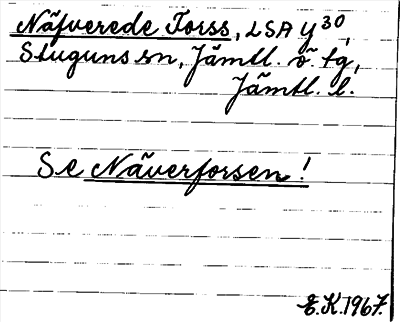 Näfverede Forss, LSA Y³⁰,
Stuguns sn, Jämtl. ö. tg,
Jämtl. l.
Se Näverforsen!
E.K. 1967.